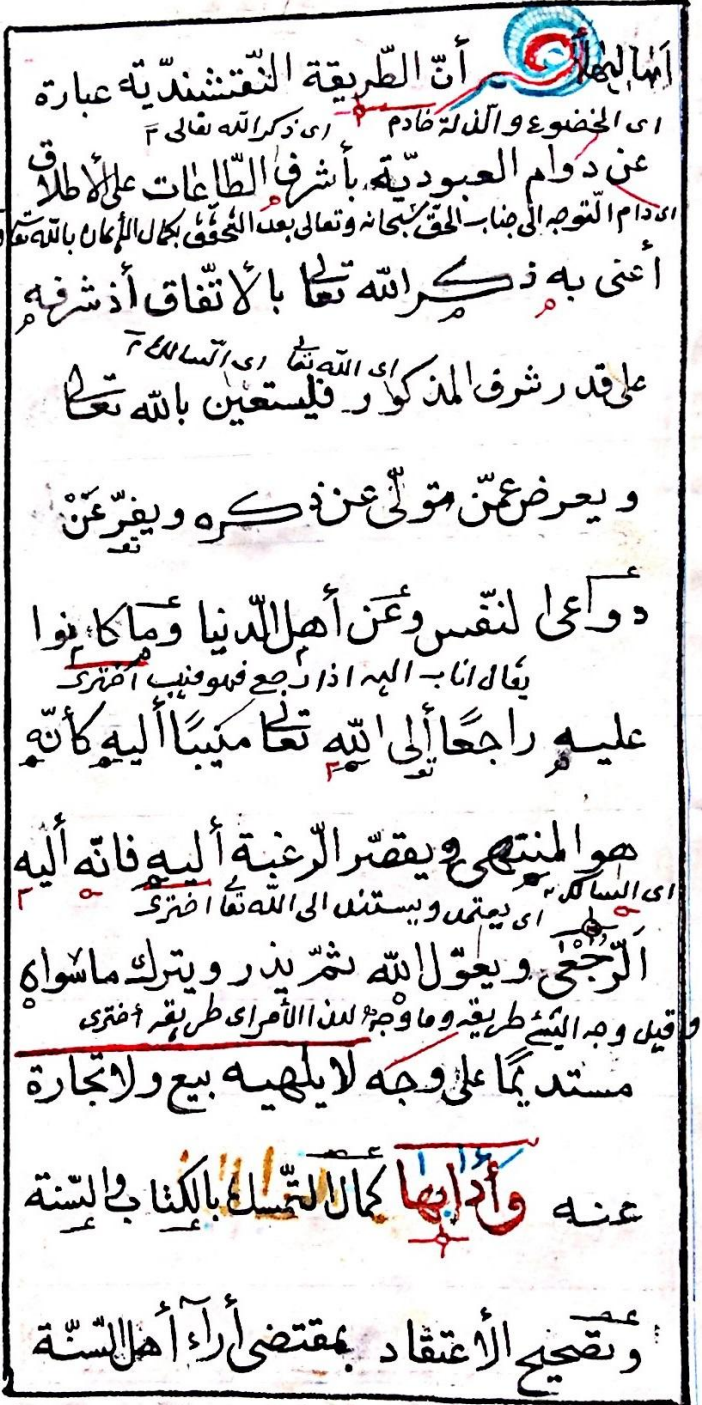 أن الطّريقة النّقشنديّة عبارة
اى الخضوع والذلة خادم اى ذكر الله تعالى
عن دوام العبوديّة بأشرف الطّاعات على الأطلاق
اى دام التّوجه الى جناب الحق سبحانه وتعالى بعد التّحقق بكمال الأيمان بالله تعا
أعنى به ذكر الله تعالى بالأتّفاق أذ شرفه
اى الله تعا اى السالك
على قدر شرف المذكور فليستعين بالله تعالى
ويعرض عمّن متولّى عن ذكره ويفرّ عَنْ
دواعى النّفس وعَن أهل الدّنيا وعما كانوا
يقال اناب اليه اذا رجع فهو منيب اخترى
عليه راجعًا ألى اللّه تعالى منيبًا أليه كأنّه
هو المنتهى ويقصّر الرّغبة أليه فانّه أليه
اى السالك اى يعتمد ويستند الى الله تعا اخترى
الرّجْعٰى ويعوّل اللّه ثمّ يذر ويترك ماسواه
وقيل وجه الشئ طريقه وما وجه لهذا الأمر اى طريقه أخترى
مستديمًا على وجه لا يلهيه بيع ولا تجارة
عنه وأدابها كمال التّمسك بالكتاب والسّنة
وتصحيح الأعتقاد بمقتضى أرآء أهل السّنّة